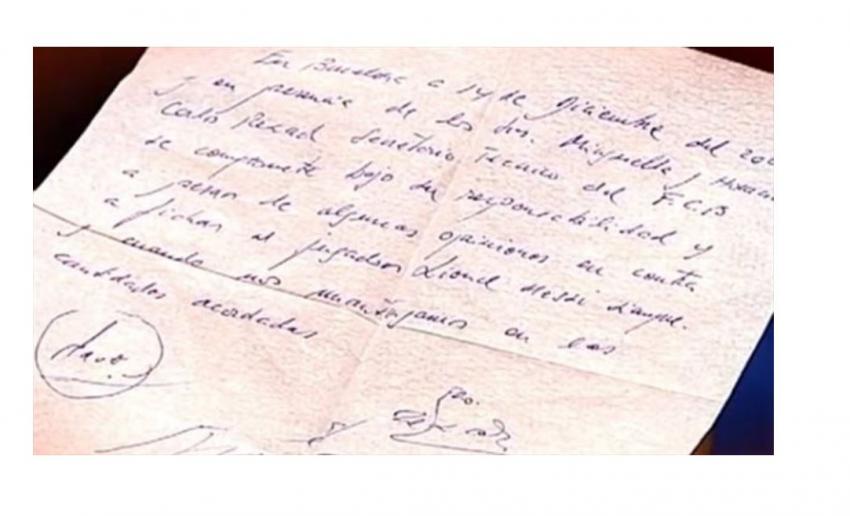 En Barcelona a 14 de Diciembre del 200
y en presencia de los Srs. Minguella y
Carlos Rexach Secretario Técnico del F.C.B
se compromete bajo su responsabilidad y
a pesar de algunas opiniones en contra
a fichar al jugador Lionel Messi siempre
y cuando nos mantengamos en las
cantidades acordadas